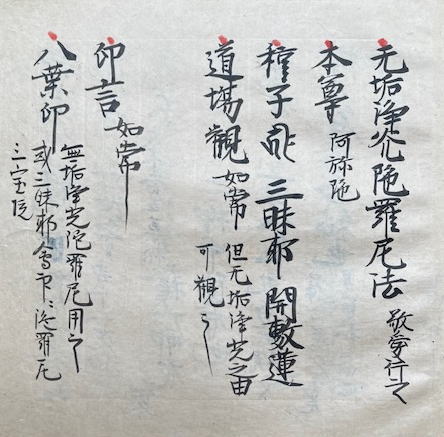 无垢淨光陁羅尼法 敬愛行之
本尊 阿弥陁
種子 三昧耶 開敷蓮
道場觀 如常 但无垢淨光之由
可觀之
印言 如常
八葉印 無垢淨光陀羅尼用之
或三昧耶會印〻陀羅尼
三宝院